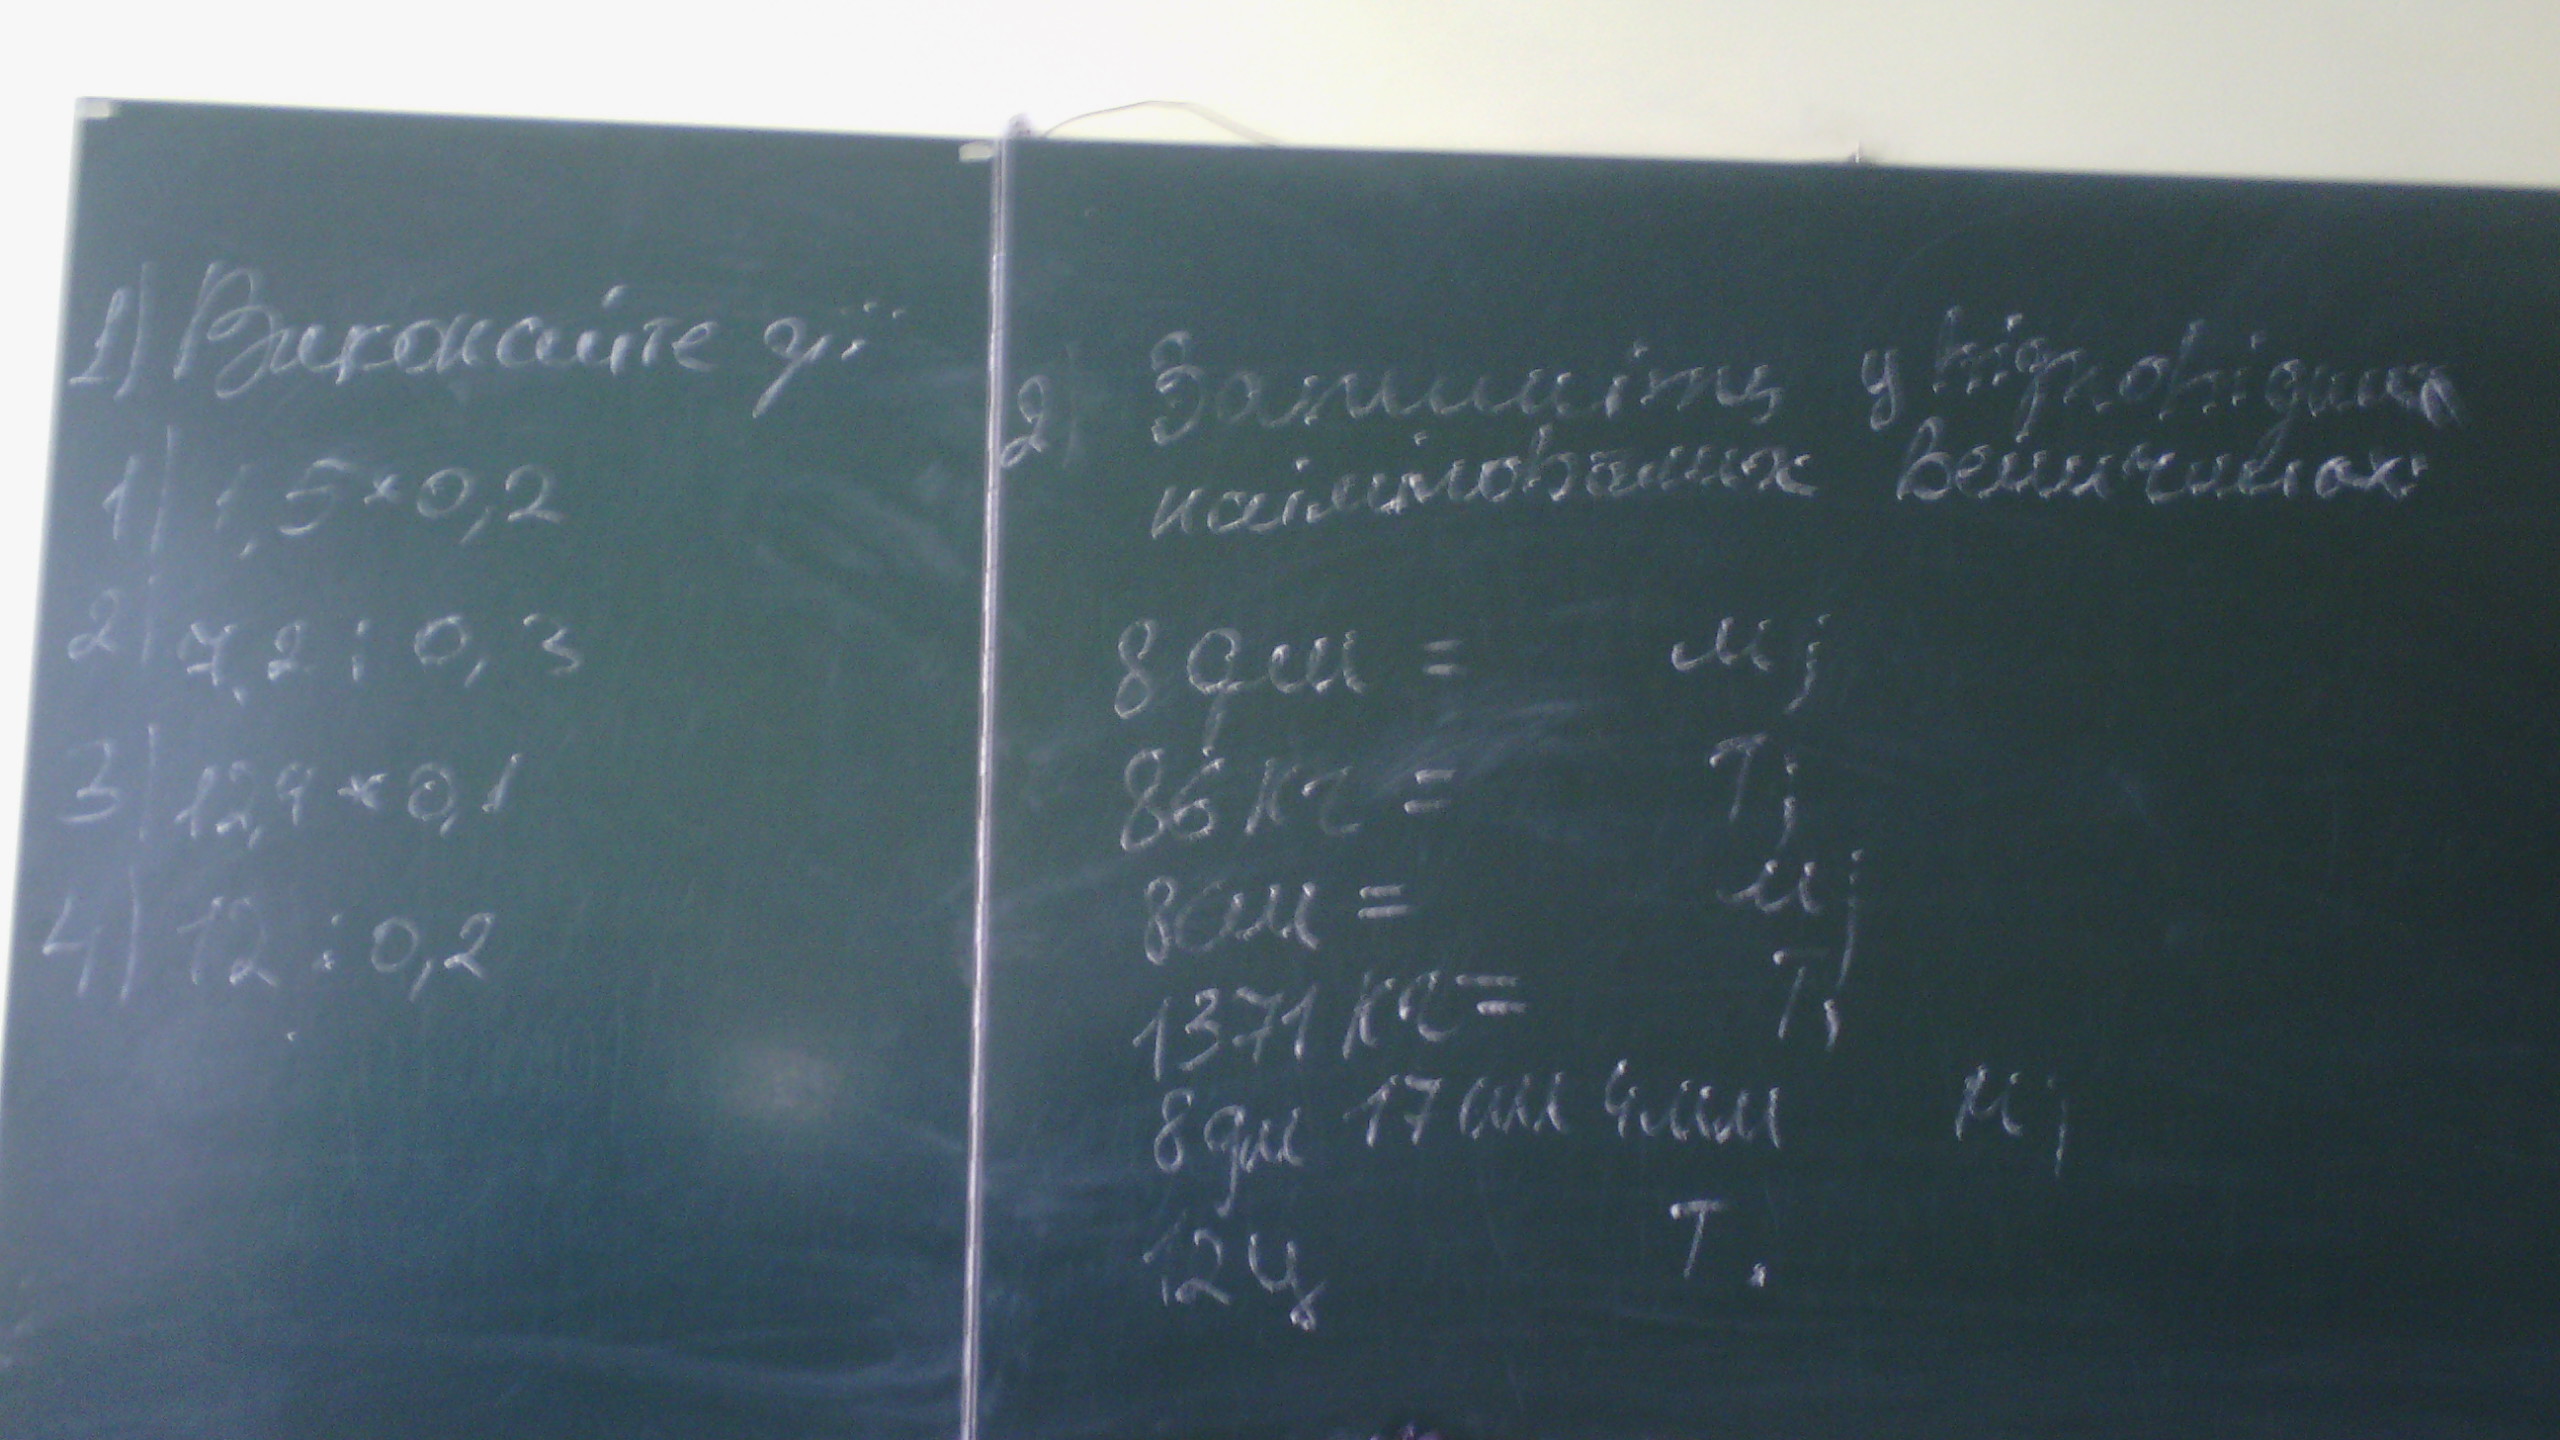 1) Виконайте дії
1) 1,5*0,2
2) 7,2 : 0,3
3) 12,4*0,1
4) 12 : 0,2
2) Запишіть у відповідних
найменованих величинах
8 дм = м;
86 кг = т;
8см = м;
1371 кг = т,
8 дм 17 см 4мм м;
12 ц т.